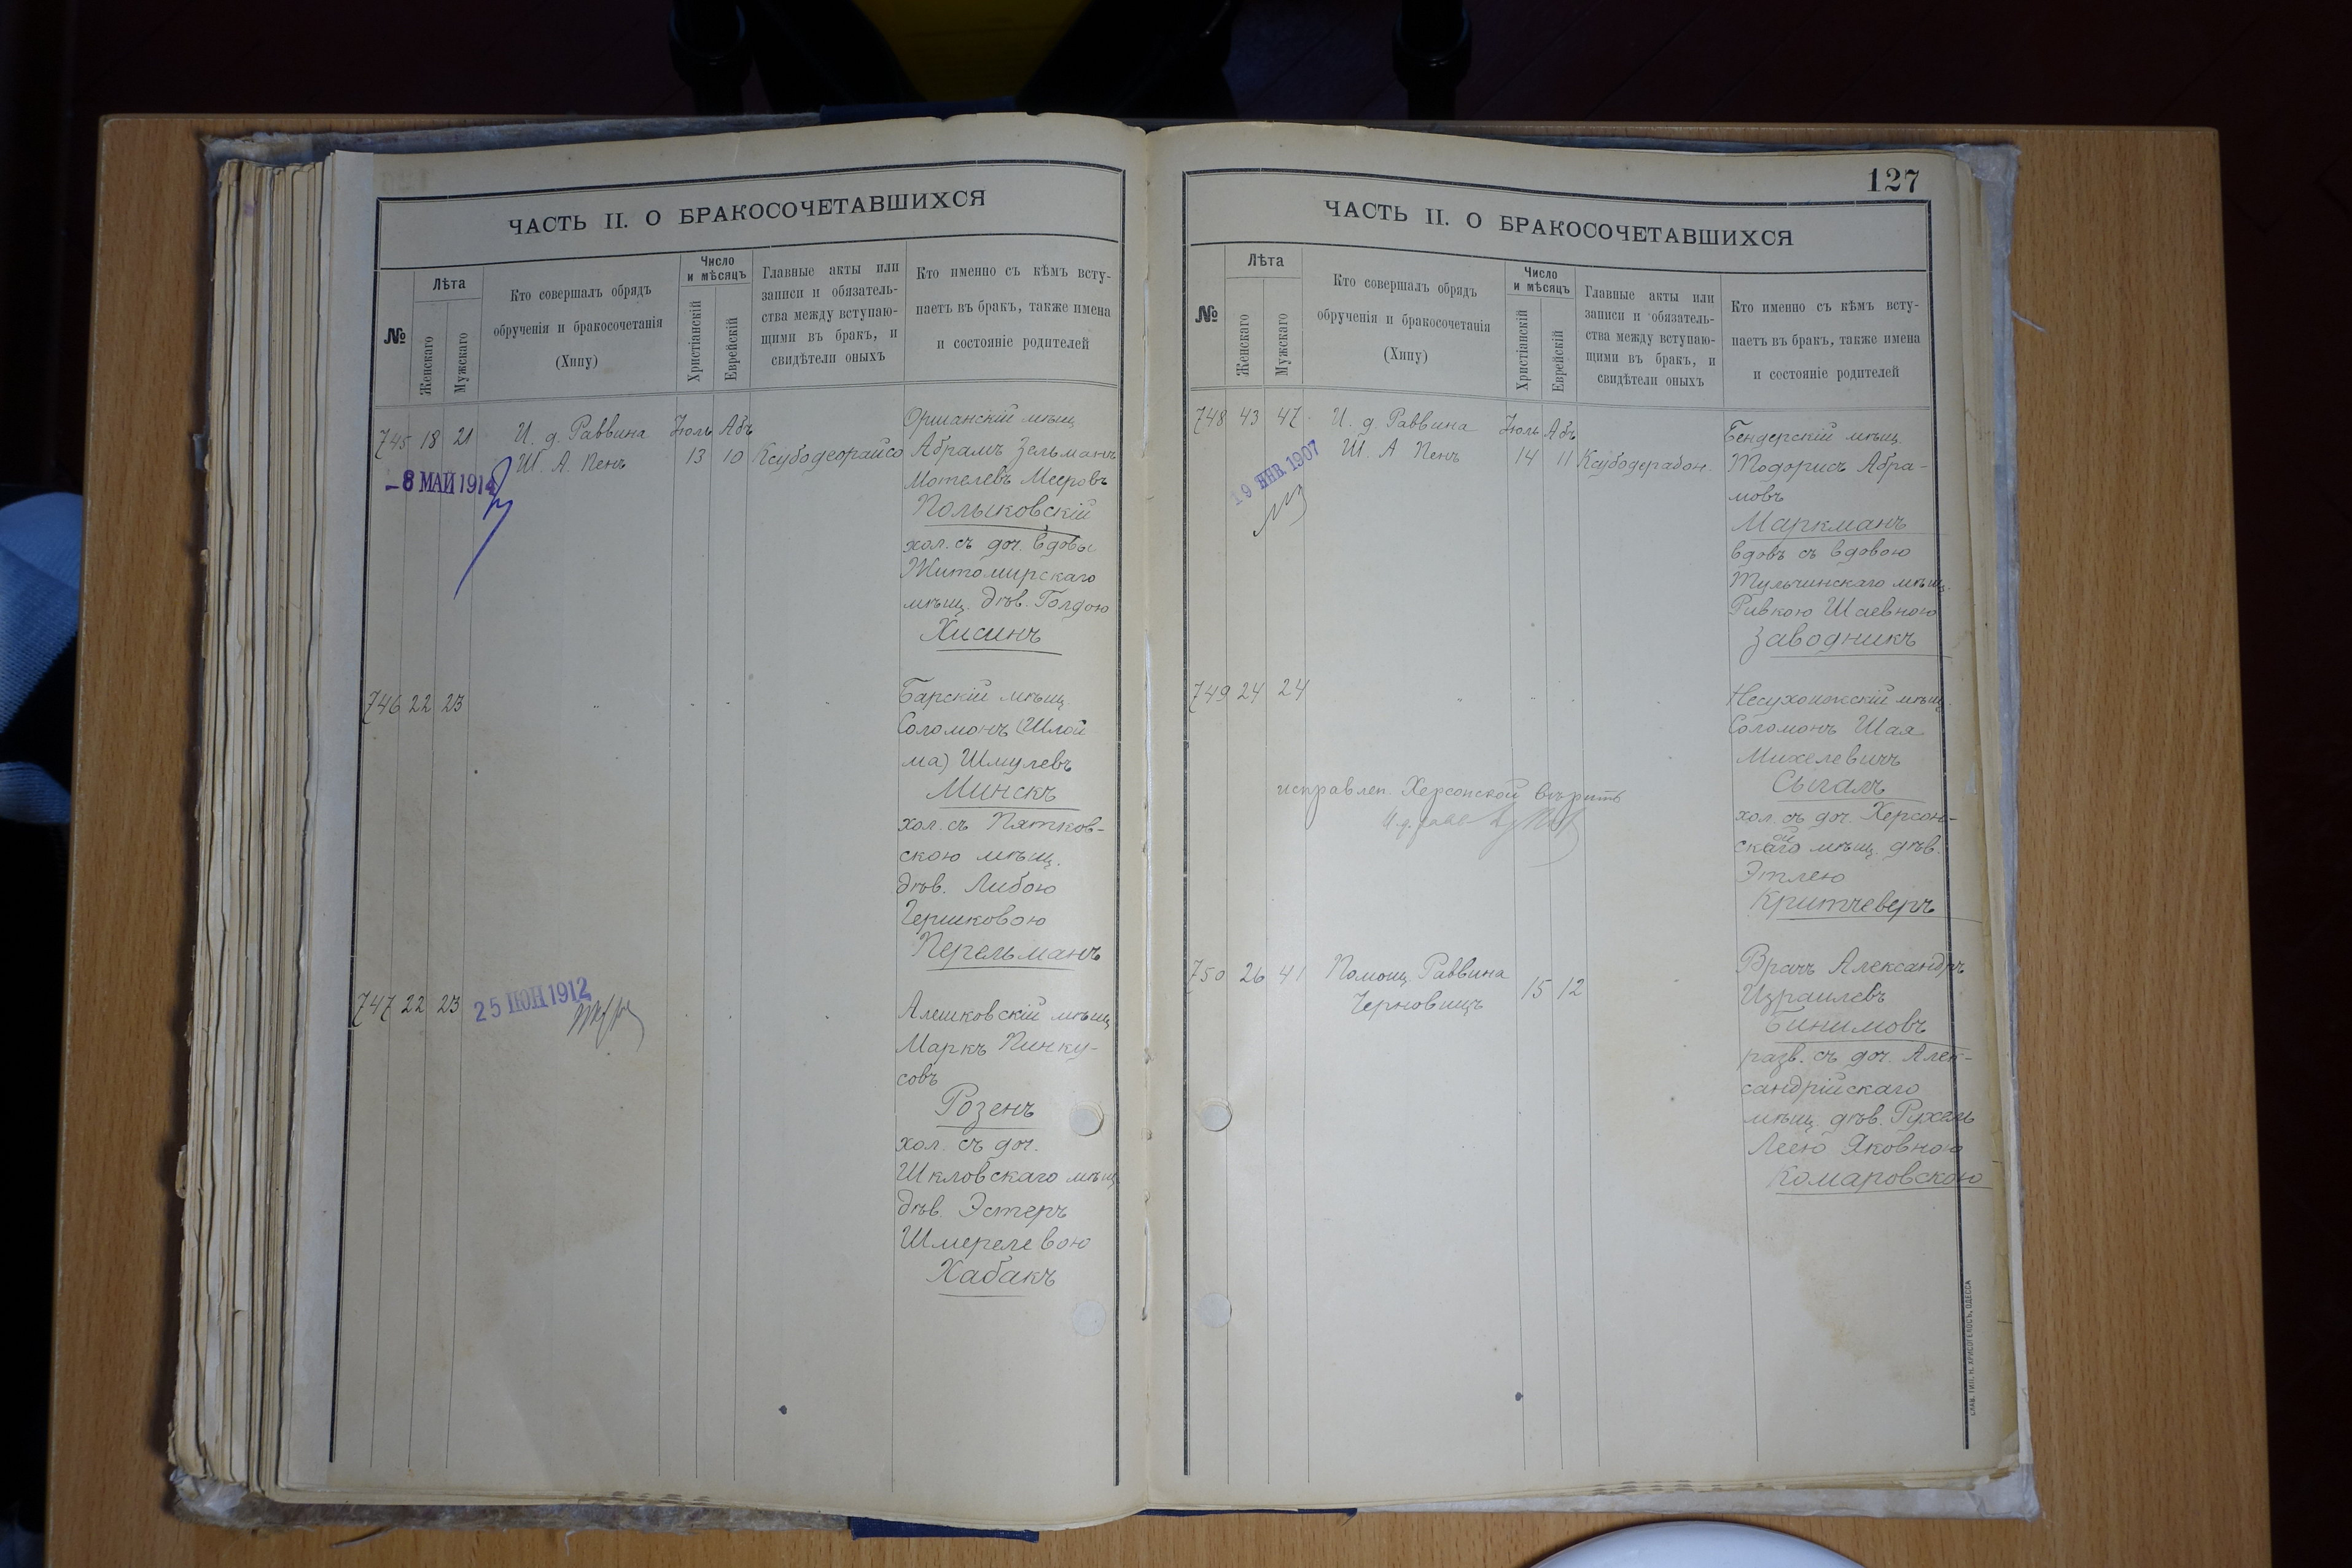 ЧАСТЬ II. О БРАКОСОЧЕТАВШИХСЯ
№
Лѣта
Женскаго
Мужскаго
Кто совершалъ обрядъ
обрученія и бракосочетанія
(Хипу)
Число
и мѣсяцъ
Христіанскій
Еврейскій
Главные акты или
записи и обязатель-
ства между вступаю-
щими въ бракъ, и
свидѣтели оныхъ
Кто именно съ кѣмъ всту-
паетъ въ бракъ, также имена
и состояніе родителей
745 18 21
И. д. Раввина
Ш. А. Пенъ
Іюль Абъ
13 10
– 8 МАЙ 1914
Оршанскій мѣщ
Абрамъ Зельманъ
Мотелевъ Мееровъ
Полыковскій
хол. съ доч. вдовы
Житомирскаго
мѣщ. дѣв. Голдою
Хисинъ
746 22 23 " " " "
Барскій мѣщ.
Соломонъ (Шлой
ма) Шмулевъ
Минскъ
хол. съ Пятков-
скою мѣщ.
дѣв. Либою
Гершковою
Перельманъ
747 22 23
25 ІЮН 1912
Алешковскій мѣщ
Маркъ Пинку-
совъ
Розенъ
хол. съ доч.
Шкловскаго мѣщ
дѣв. Эстеръ
Шмерелевою
Хабакъ
127
ЧАСТЬ II. О БРАКОСОЧЕТАВШИХСЯ
№
Лѣта
Женскаго
Мужскаго
Кто совершалъ обрядъ
обрученія и бракосочетанія
(Хипу)
Число
и мѣсяцъ
Христіанскій
Еврейскій
Главные акты или
записи и обязатель-
ства между вступаю-
щими въ бракъ, и
свидѣтели оныхъ
Кто именно съ кѣмъ всту-
паетъ въ бракъ, также имена
и состояніе родителей
748 43 47
И. д. Раввина
Ш. А Пенъ
Іюль Абъ
14 11
19 ЯНВ. 1907
Бендерскій мѣщ.
Тодорисъ Абра-
мовъ
Маркманъ
вдовъ съ вдовою
Тульчинскаго мѣщ.
Ривкою Шаевною
Заводникъ
749 24 24 " " "
Несухоижскій мѣщ.
Соломонъ Шая
Михелевичъ
Сигалъ
хол. съ доч. Херсон-
скаго мѣщ. дѣв.
Этлею
Критчеверъ
исправлен. Херсонской вѣрить
750 26 41
Помощ. Раввина
Черновицъ
15 12
Врачъ Александръ
Израилевъ
Бинимовъ
разв. съ доч. Алек-
сандрійскаго
мѣщ. дѣв. Рухель
Леею Яковною
Комаровскою
СКЛ. ТИП. Н. ХРИСОГЕЛОСЪ, ОДЕССА